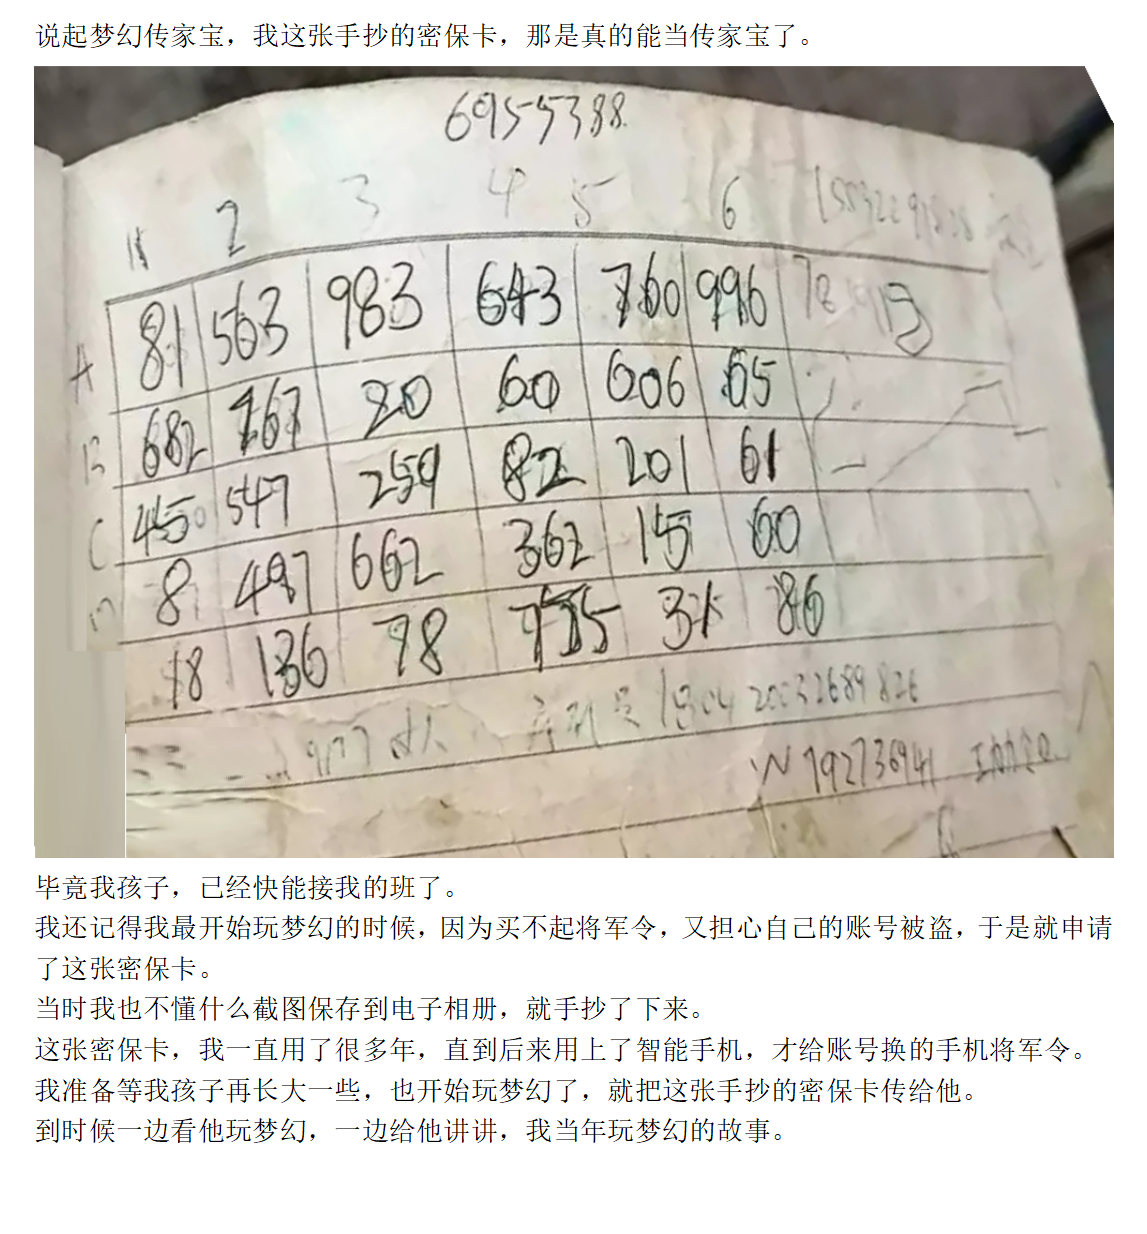 说起梦幻传家宝，我这张手抄的密保卡，那是真的能当传家宝了。
6955388
2 3 4 5 6
A 81 563 983 643 760 996
B 682 767 20 60 606 65
C 450 547 259 82 201 61
8 497 662 362 15 60
18 136 78 735 31 86
20032689826
W 192736941
毕竟我孩子，已经快能接我的班了。
我还记得我最开始玩梦幻的时候，因为买不起将军令，又担心自己的账号被盗，于是就申请
了这张密保卡。
当时我也不懂什么截图保存到电子相册，就手抄了下来。
这张密保卡，我一直用了很多年，直到后来用上了智能手机，才给账号换的手机将军令。
我准备等我孩子再长大一些，也开始玩梦幻了，就把这张手抄的密保卡传给他。
到时候一边看他玩梦幻，一边给他讲讲，我当年玩梦幻的故事。